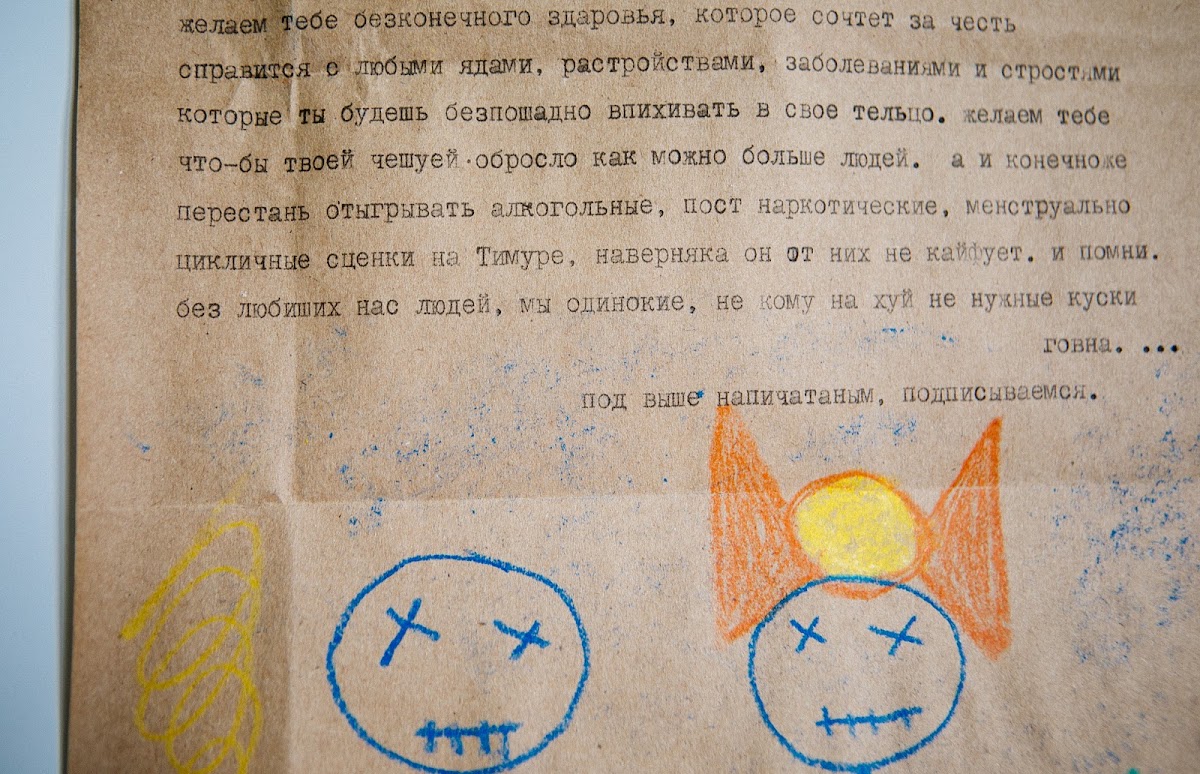 желаем тебе безконечного здаровья, которое сочтет за честь
справится с любыми ядами, растройствами, заболеваниями и стростями
которые ты будешь безпошадно впихивать в свое тельцо. желаем тебе
что-бы твоей чешуей обросло как можно больше людей. а и конечноже
перестань отыгрывать алкогольные, пост наркотические, менструально
цикличные сценки на Тимуре, наверняка он от них не кайфует. и помни.
без любиших нас людей, мы одинокие, не кому на хуй не нужные куски
говна. ...
под выше напичатаным, подписываемся.